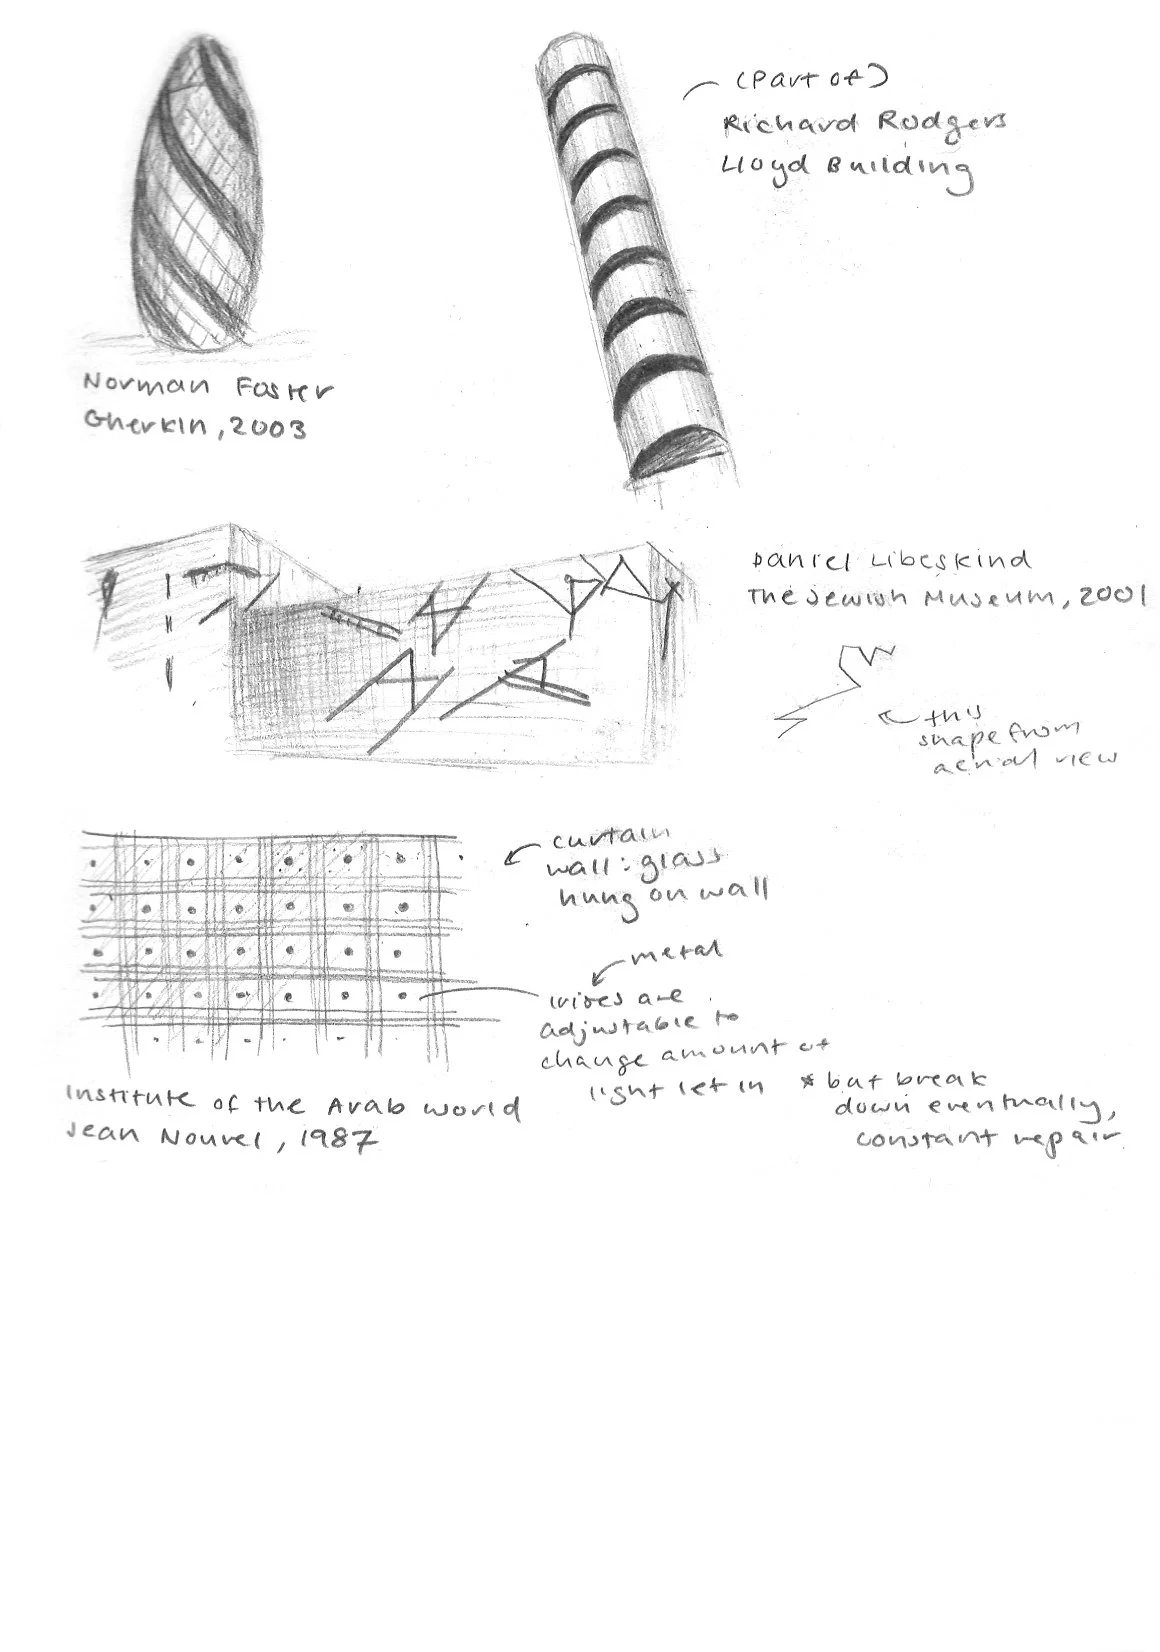 (Part of)
Richard Rodgers
Lloyd Building
Norman Foster
Gherkin, 2003
Daniel Libeskind
The Jewish Museum, 2001
this
shape from
aerial view
curtain
wall: glass
hung on wall
metal
irises are
adjustable to
change amount of
light let in
* but break
down eventually,
constant repair
Institute of the Arab World
Jean Nouvel, 1987